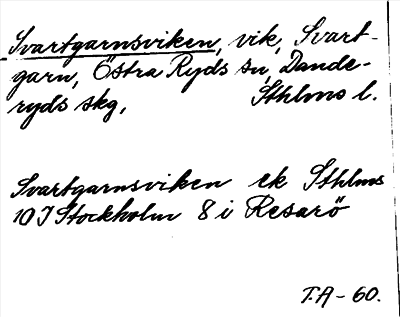 Svartgarnsviken, vik, Svart-
garn, Östra Ryds sn, Dande-
ryds skg, Sthlms l.
Svartgarnsviken ek Sthlms
10 I Stockholm 8 i Resarö
T.A-60.